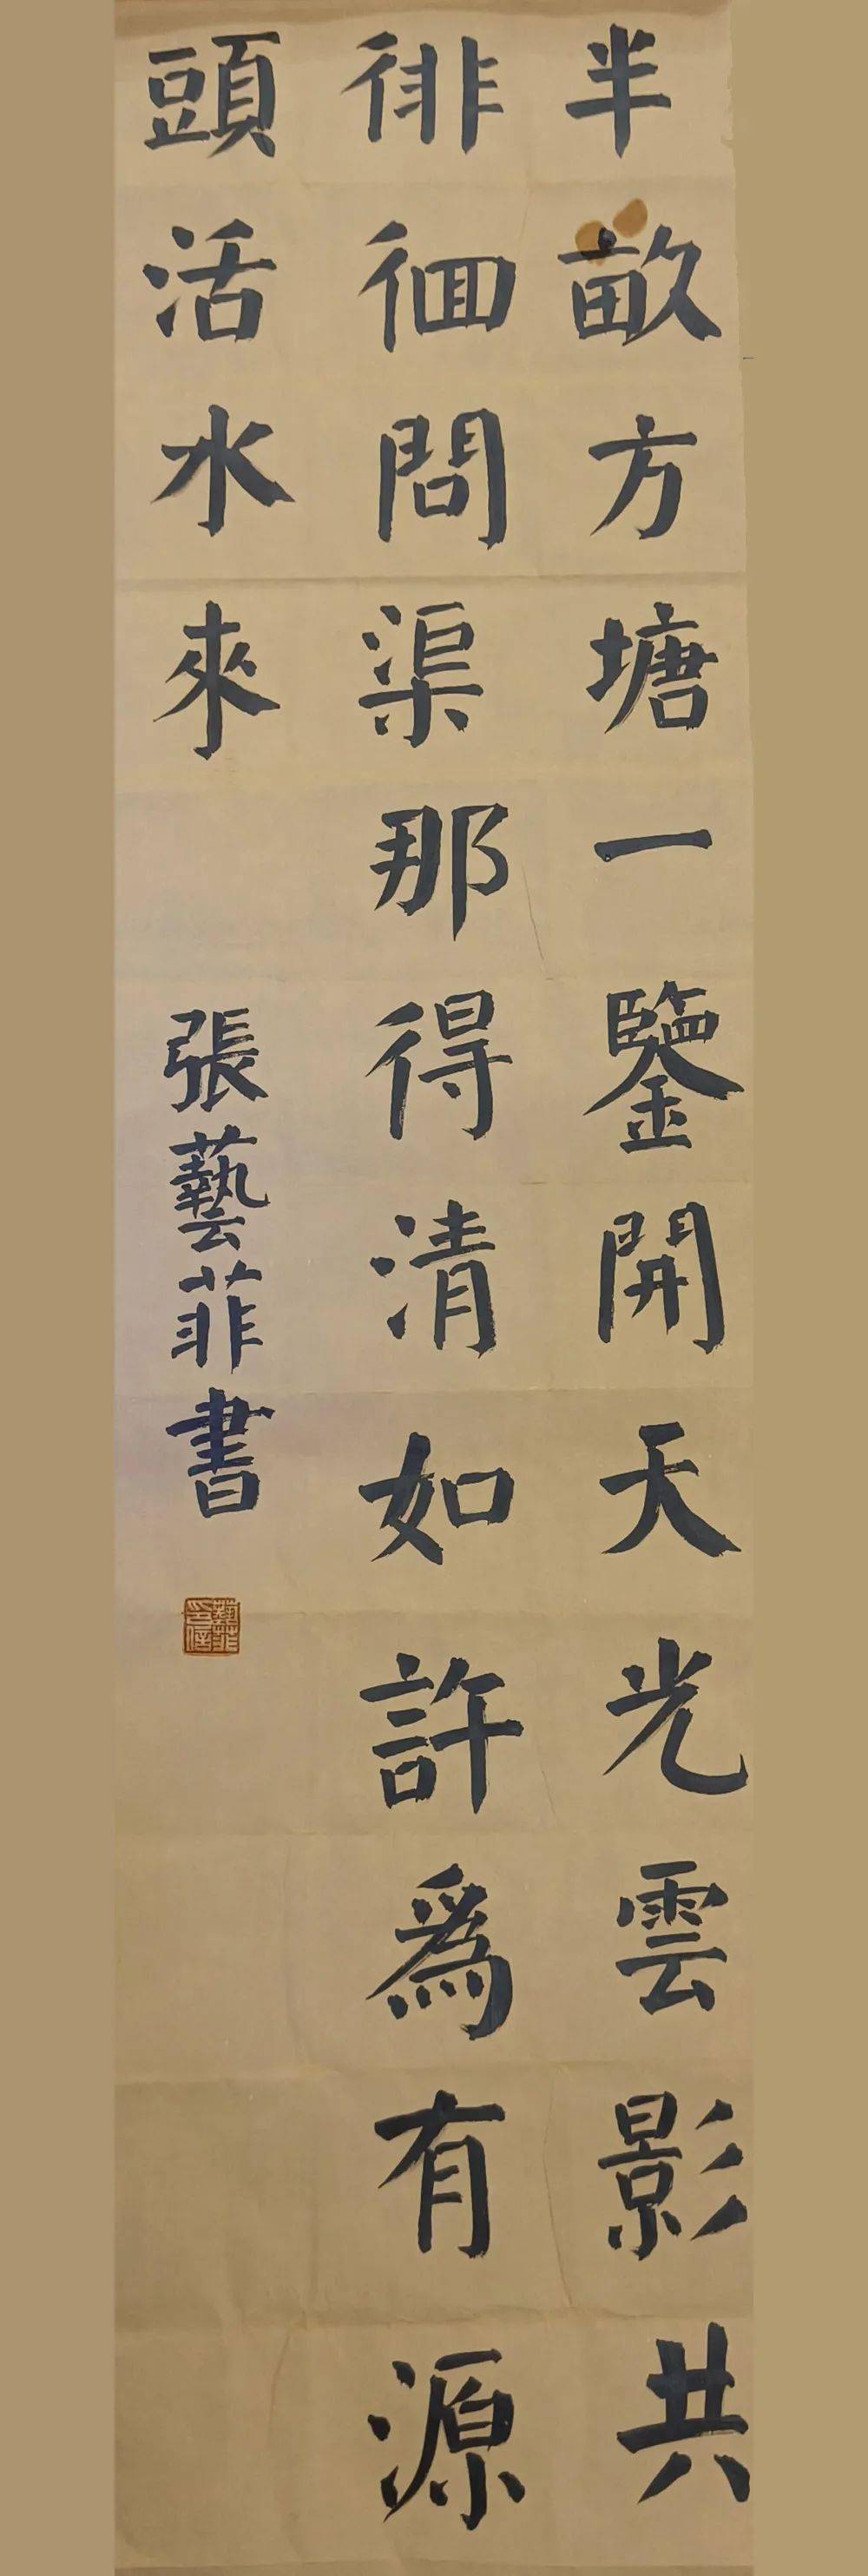 半畝方塘一鑒開天光雲影共
徘徊問渠那得清如許爲有源
頭活水來
張藝菲書
藝菲印信